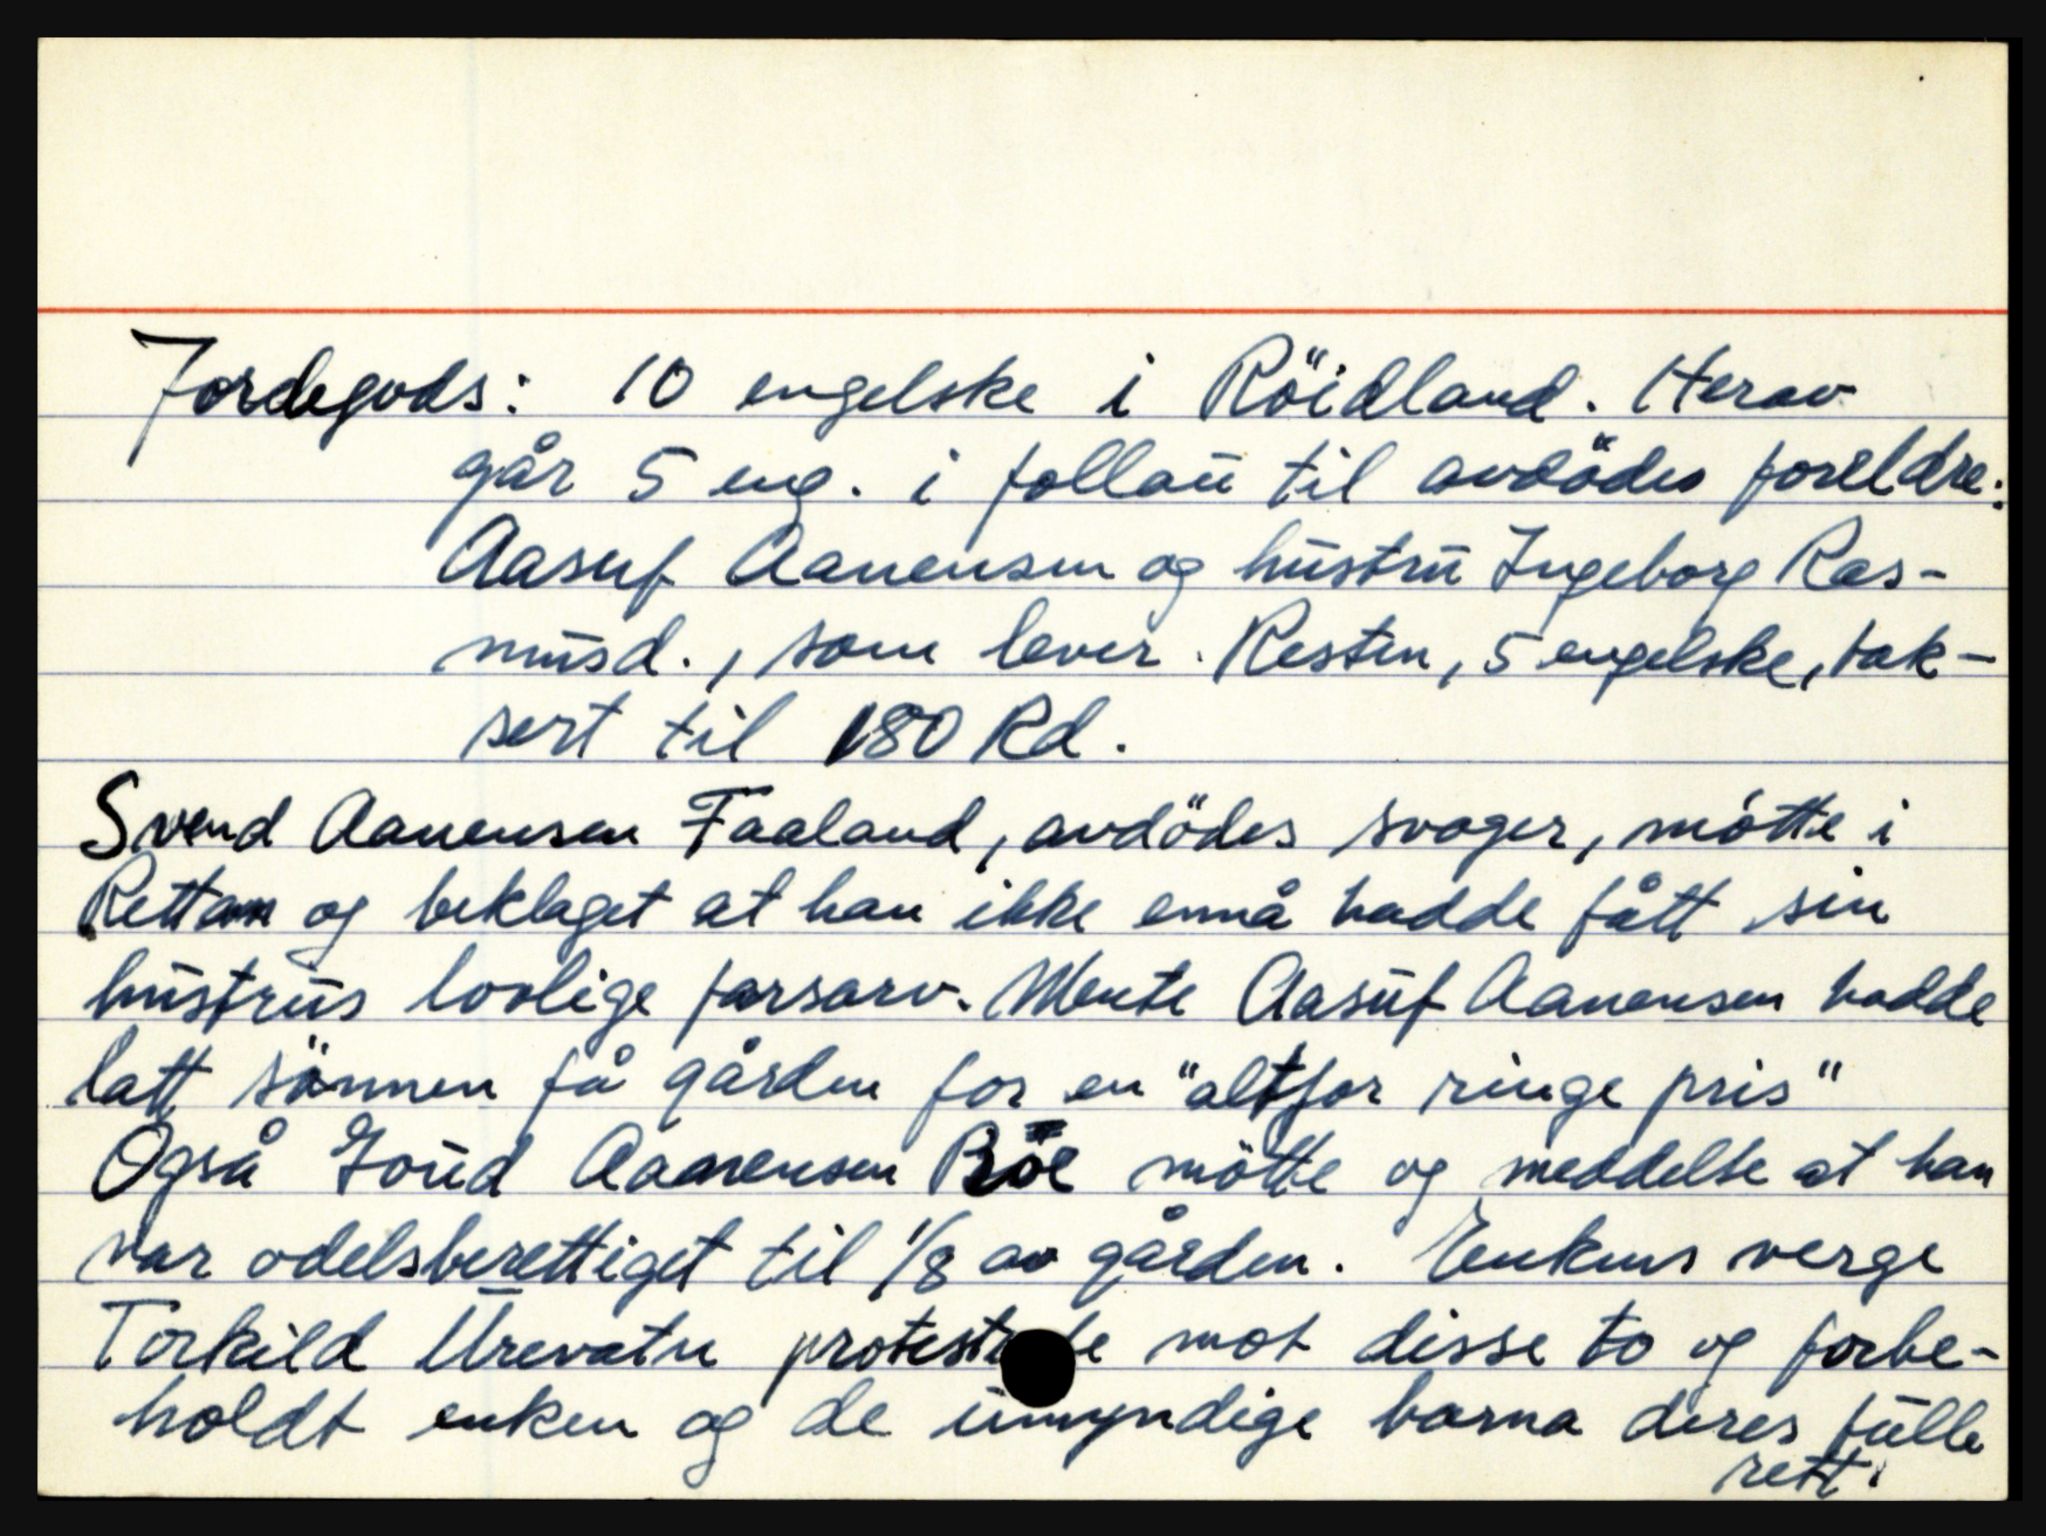 Jordegods: 10 engelske i Röidland. Herav
går 5 eng. i follaū til avdödes foreldre:
Aasuf Aanensen og hūstrū Ingeborg Ras-
mūsd., som lever. Resten, 5 engelske, tak-
sert til 180 Rd.
Svend Aanensen Faaland, avdödes svoger, mötte i
Retten og beklaget at han ikke ennå hadde fått sin
hūstrūs lovlige farsarv. Mente Aasūf Aanensen hadde
latt sönnen få gården for en "altfor ringe pris"
Også Joūd Aanensen Böe mötte og meddelte at han
var odelsberettiget til 1/8 av gården. Enkens verge
Torkild Ūrevatn protesterte mot disse to og forbe-
holdt enken og de ūmyndige barna deres fūlle
rett.